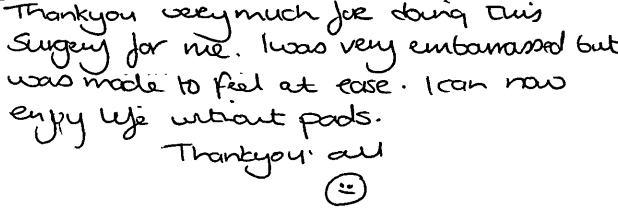 Thankyou very much for doing this
Surgery for me. I was very embarrassed but
was made to feel at ease. I can now
enjoy life without pads.
Thankyou all